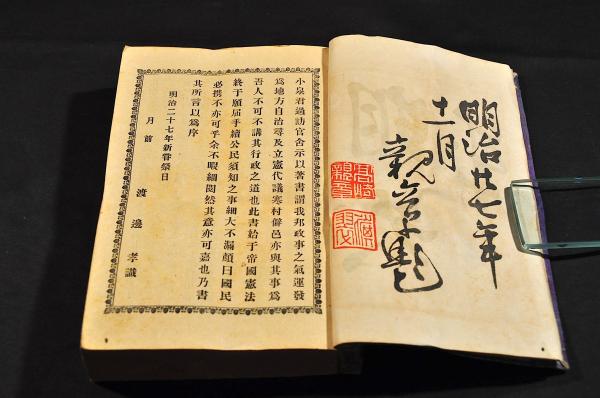 明治廿七年
十一月
親章題
高崎
親章
小泉君過訪官舍示以著書謂我邦政事之氣運發
爲地方自治尋及立憲代議寒村僻邑亦與其事爲
吾人不可不講其行政之道也此書始于帝國憲法
終于願屆手續公民須知之事細大不漏顏曰國民
必携不亦可乎余不暇細閱然其意亦可嘉也乃書
其所言以爲序
明治二十七年新嘗祭日
月前 渡邊孝識